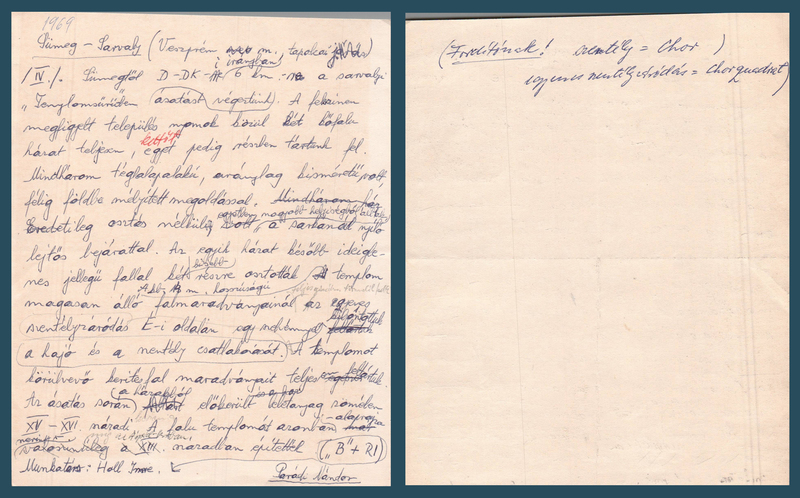 1969
Sümeg – Sarvaly (Veszprém m. tapolcai járás)
irányban
/IV./. Sümegtől D–DK 6 km-re a sarvalyi
„Templomsűrűben ásatást végeztünk. A felszínen
megfigyelt település nyomok közül két kőfalu
kettőt
házat teljesen, egyet pedig részben tártunk fel.
Mindhárom téglalapalakú, aránylag kisméretű volt,
félig földbe mélyített megoldással. Mindhárom ház
egyetlen nagyobb helyiségből
Eredetileg osztás nélküli volt, a sarkánál nyíló
lejtős bejárattal. Az egyik házat később ideigle-
kisebb
nes jellegű fallal két részre osztották. A templom
A kb. m. hosszúságú
magasan álló falmaradványainál az egyenes
szentélyzáródás É-i oldalán egy
a hajó és a szentély csatlakozását. A templomot
feltártuk
körülvevő kerítésfal maradványait teljes
(a házakból
Az ásatás során előkerült leletanyag zömében
XV–XVI. századi. A falu templomát azonban alaprajza
a XIII. században építették („B” + R1)
Munkatárs: Holl Imre.
Parádi Nándor
(Fordítónak! szentély = Chor )
egyenes szentélyzáródás = Chorquadrat)